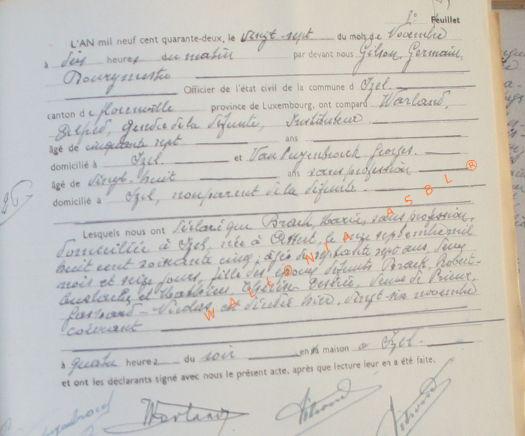 2e Feuillet
L'AN mil neuf cent quarante-deux, le vingt sept du mois de Novembre
à dix heures du matin par devant nous Gilson, Germain,
Bourgmestre
Officier de l'état civil de la commune d Izel.
canton de florenville province de Luxembourg, ont comparu Warland,
Alfred, Gendre de la défunte, Instituteur
âgé de cinquante sept ans
domicilié à Izel et Van Puyenbroeck Georges.
âgé de vingt huit ans sans profession
domicilié à Izel, non parent de la défunte.
26
Lesquels nous ont déclaré que Brack, Marie, sans profession,
domiciliée à Izel, née à le onze septembre mil
huit cent soixante cinq, âgée de septante sept ans, deux
mois et seize jours, fille des époux défunts Brack, Hubert-
Eustache, et Thérèse veuve de
Gaspard-Nicolas, est décédée hier, vingt six novembre
courant
à quatre heures du soir en sa maison à Izel.
et ont les déclarants signé avec nous le présent acte, après que lecture leur en a été faite.
Warland
WALLONIA ASBL ®